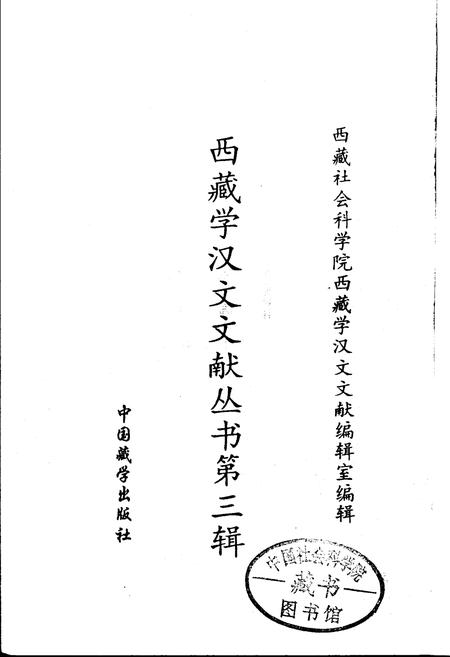 西藏社会科学院西藏学汉文文献编辑室编辑
西藏学汉文文献丛书第三辑
中国藏学出版社
中国社会科学院
藏书
图书馆